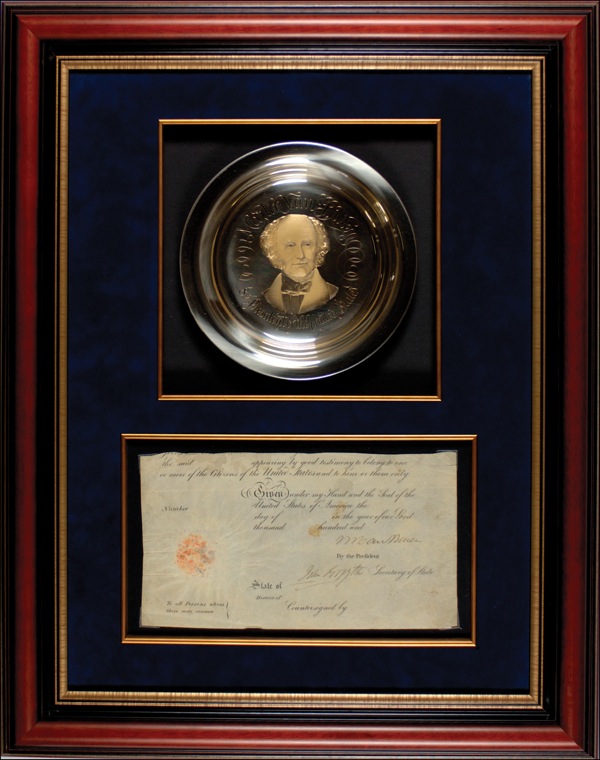 Martin Van Buren
President United States
the said appearing by good testimony to belong to one
or more of the Citizens of the United States and to him or them only
Given under my Hand and the Seal of the
Number United States of America the
day of in the year of our Lord
thousand hundred and
M Van Buren
By the President
John Forsyth Secretary of State
State of
District of
To all Persons whom
these may concern
Countersigned by